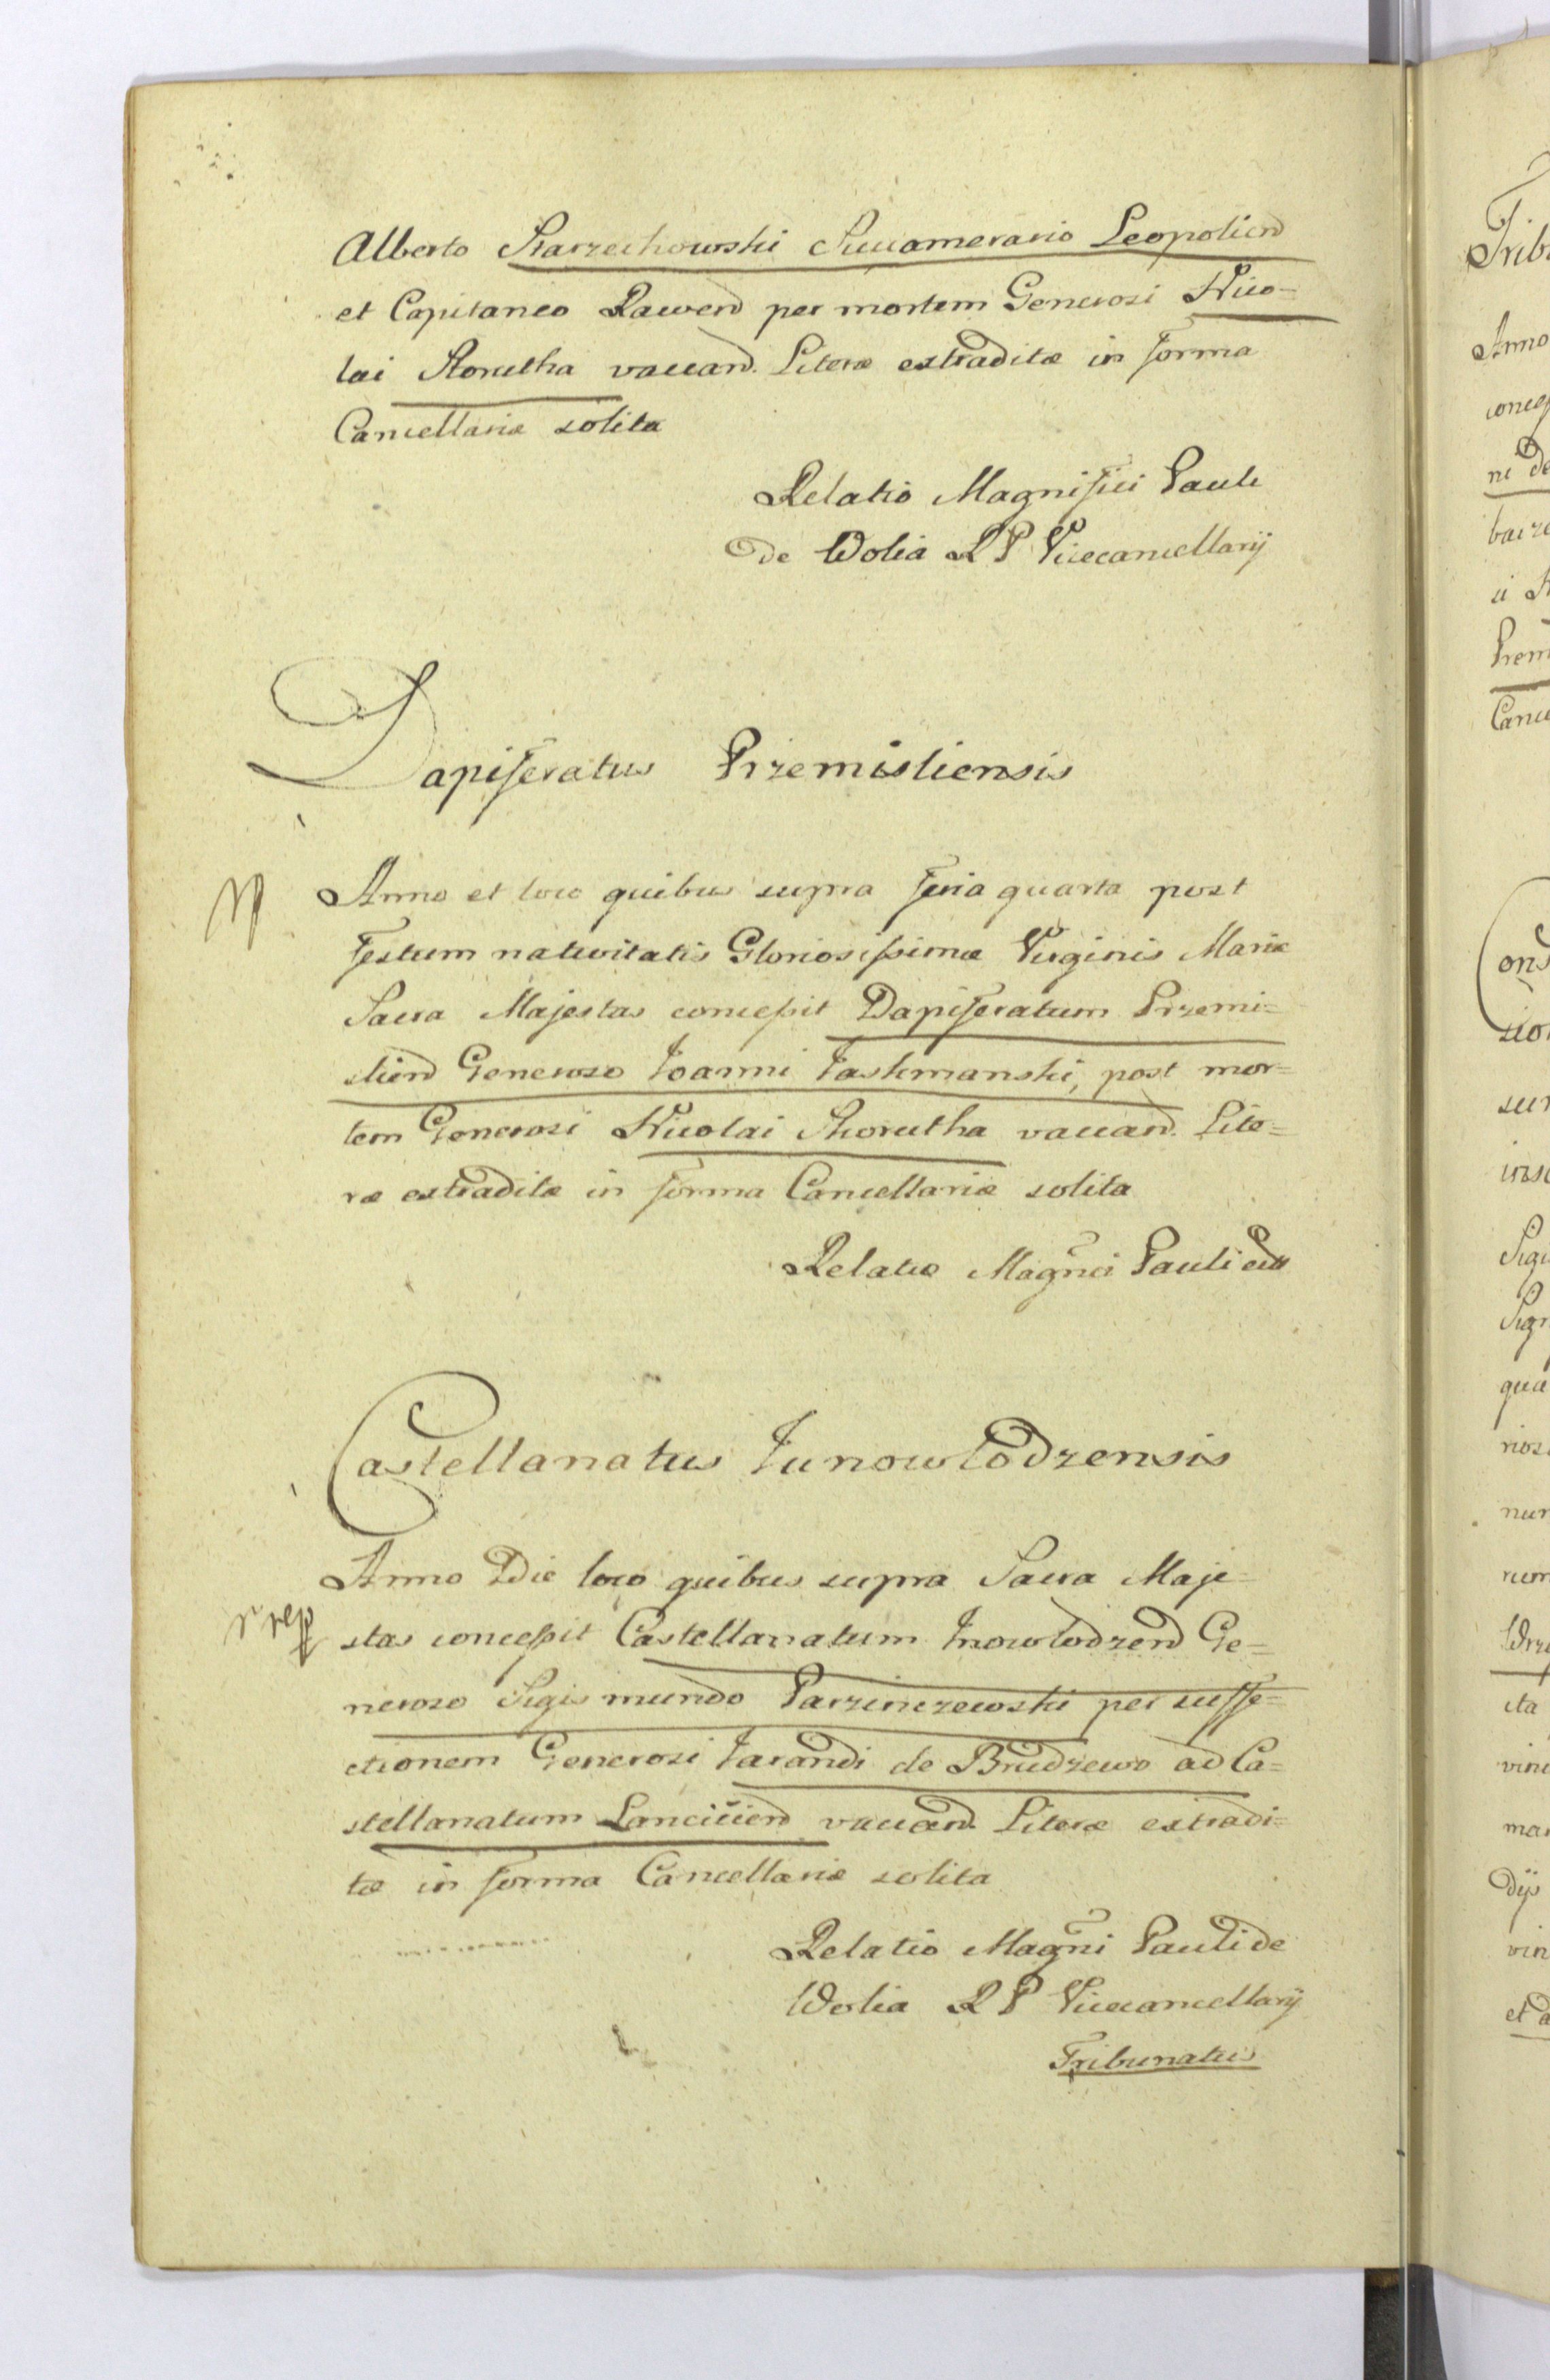 Alberto Starzechowski Succamerario Leopolien
et Capitaneo Rawen per mortem Generosi Nico-
lai Skorutha vacan. Literæ extraditæ in forma
Cancellariæ solita
Relatio Magnifici Pauli
de Wolia R P Vicecancellarij
Dapiferatus Przemisliensis
Anno et loco quibus supra feria quarta post
festum nativitatis Gloriosissimæ Virginis Mariæ
Sacra Majestas concessit Dapiferatum Przemi=
slien Generoso Joanni Taskmanski, post mor=
tem Generosi Nicolai Skorutha vacan. Lite=
ræ extraditæ in forma Cancellariæ solita
Relatio Magnci Pauli etc
Castellanatus Junowlodzensis
Anno Die loco quibus supra Sacra Maje=
stas concessit Castellanatum Inowlodzen Ge=
neroso Sigismundo Parzinczewski per suffe=
ctionem Generosi Jarandi de Brudzewo ad Ca=
stellanatum Lancicien vacan. Literæ extradi=
tæ in forma Cancellariæ solita
Relatio Magni Pauli de
Wolia R P Vicecancellarij
Tribunatus